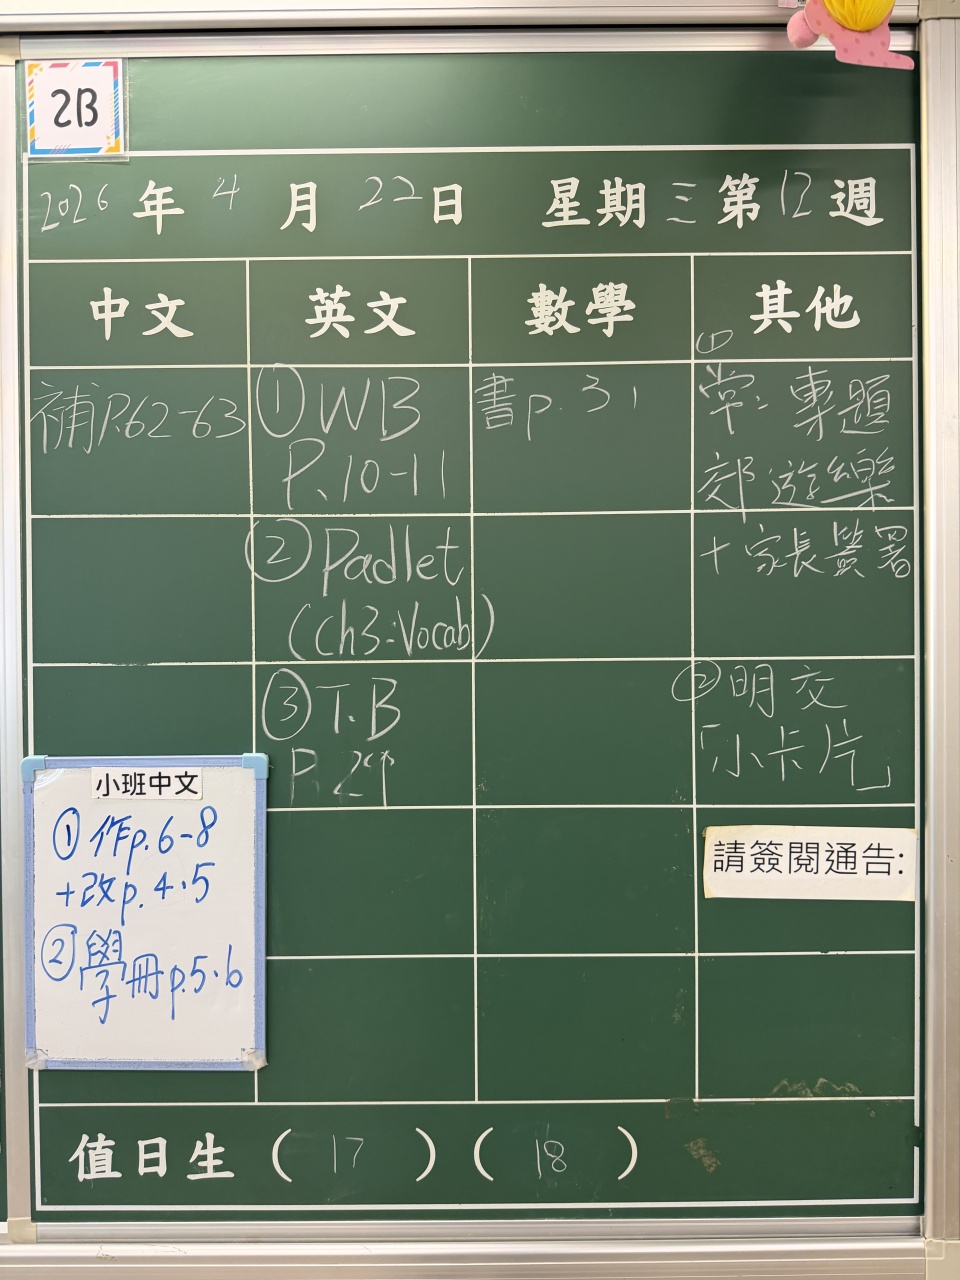 2B
2026 年 4 月 22 日 星期 三 第 12 週
中文 英文 數學 其他
補P.62-63
① WB
P.10-11
② Padlet
(Ch3:Vocab)
③ T.B
書p.31
①
常:專題
郊遊樂
+家長簽署
② 明交
「小卡片」
請簽閱通告:
小班中文
① 作p.6-8
+改p.4.5
② 學冊p.5.6
值日生 ( 17 ) ( 18 )